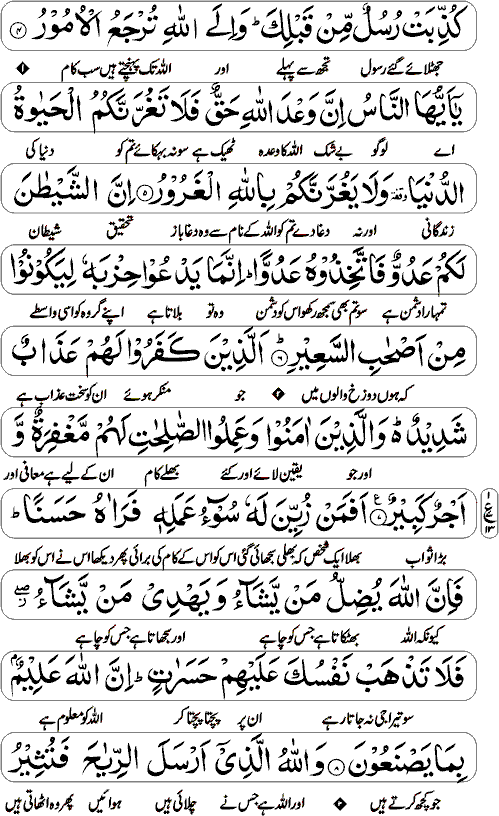 كُذِّبَتْ رُسُلٌ مِّنْ قَبْلِكَ ؕ وَاِلَى اللّٰهِ تُرْجَعُ الْاُمُوْرُ ﴿۴﴾
جھٹلائے گئے رسول تجھ سے پہلے اور اللہ تک پہنچتے ہیں سب کام ۱
يٰۤاَيُّهَا النَّاسُ اِنَّ وَعْدَ اللّٰهِ حَقٌّ فَلَا تَغُرَّنَّكُمُ الْحَيٰوةُ
اے لوگو بے شک اللہ کا وعدہ ٹھیک ہے سو نہ بہکائے تم کو دنیا کی
الدُّنْيَا ۥ وَلَا يَغُرَّنَّكُمْ بِاللّٰهِ الْغَرُوْرُ ﴿۵﴾ اِنَّ الشَّيْطٰنَ
زندگانی اور نہ دغا دے تم کو اللہ کے نام سے وہ دغاباز تحقیق شیطان
لَكُمْ عَدُوٌّ فَاتَّخِذُوْهُ عَدُوًّا ؕ اِنَّمَا يَدْعُوْا حِزْبَهٗ لِيَكُوْنُوْا
تمہارا دشمن ہے سو تم بھی سمجھ رکھو اس کو دشمن وہ تو بلاتا ہے اپنے گروہ کو اسی واسطے
مِنْ اَصْحٰبِ السَّعِيْرِ ﴿۶﴾ اَلَّذِيْنَ كَفَرُوْا لَهُمْ عَذَابٌ
کہ ہوں دوزخ والوں میں ۲ جو منکر ہوئے ان کو سخت عذاب ہے
شَدِيْدٌ ۬ؕ وَالَّذِيْنَ اٰمَنُوْا وَعَمِلُوا الصّٰلِحٰتِ لَهُمْ مَّغْفِرَةٌ وَّ
اور جو یقین لائے اور کئے بھلے کام ان کے لیے ہے معافی اور
اَجْرٌ كَبِيْرٌ ﴿۷﴾ اَفَمَنْ زُيِّنَ لَهٗ سُوْٓءُ عَمَلِهٖ فَرَاٰهُ حَسَنًا ؕ
بڑا ثواب بھلا ایک شخص کہ بھلی سجھائی گئی اس کو اس کے کام کی برائی پھر دیکھا اس نے اس کو بھلا
فَاِنَّ اللّٰهَ يُضِلُّ مَنْ يَّشَآءُ وَيَهْدِىْ مَنْ يَّشَآءُ ۖ
کیونکہ اللہ بھٹکاتا ہے جس کو چاہے اور سجھاتا ہے جس کو چاہے
فَلَا تَذْهَبْ نَفْسُكَ عَلَيْهِمْ حَسَرٰتٍ ؕ اِنَّ اللّٰهَ عَلِيْمٌۢ
سو تیرا جی نہ جاتا رہے ان پر پچھتا پچھتا کر اللہ کو معلوم ہے
بِمَا يَصْنَعُوْنَ ﴿۸﴾ وَاللّٰهُ الَّذِىْۤ اَرْسَلَ الرِّيٰحَ فَتُثِيْرُ
جو کچھ کرتے ہیں ۳ اور اللہ ہے جس نے چلائی ہیں ہوائیں پھر وہ اٹھاتی ہیں